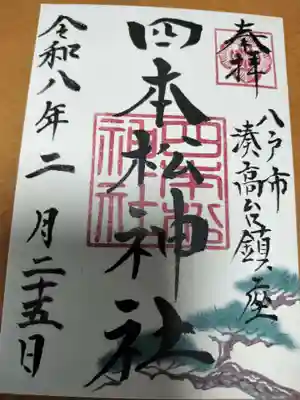 奉拝
八戸市
湊高台鎮座
四本松神社
四本松
神社
令和八年二月二十五日